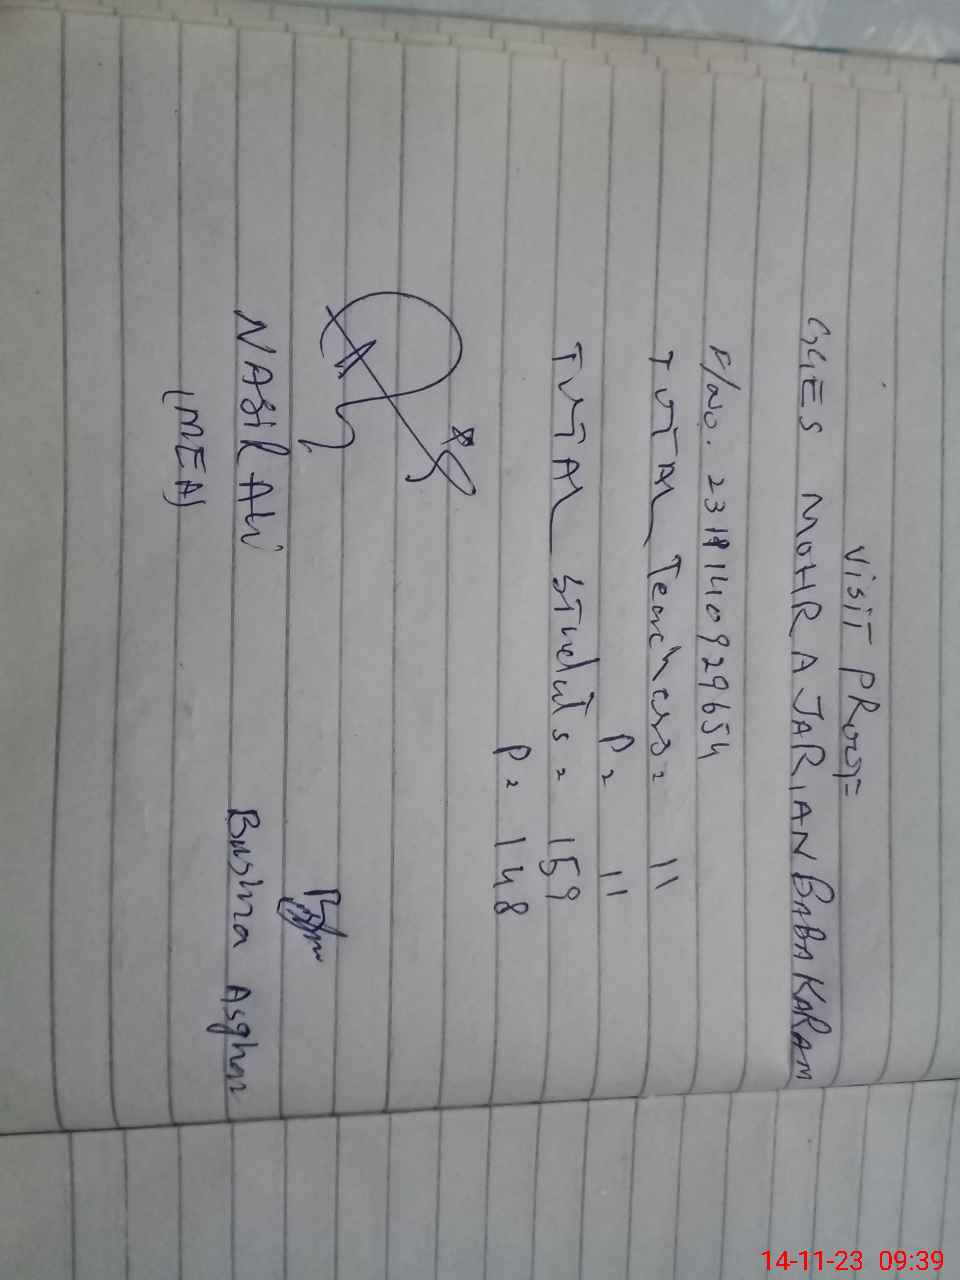 VisiT PRoof
GGES MOHRA JARIAN BABA KARAM
F/No. 2319140929654
TOTAL Teachers = 11
P = 11
TOTAL Students = 159
P = 148
NASIR Ali
(MEA)
Bushra Asghar
14-11-23 09:39